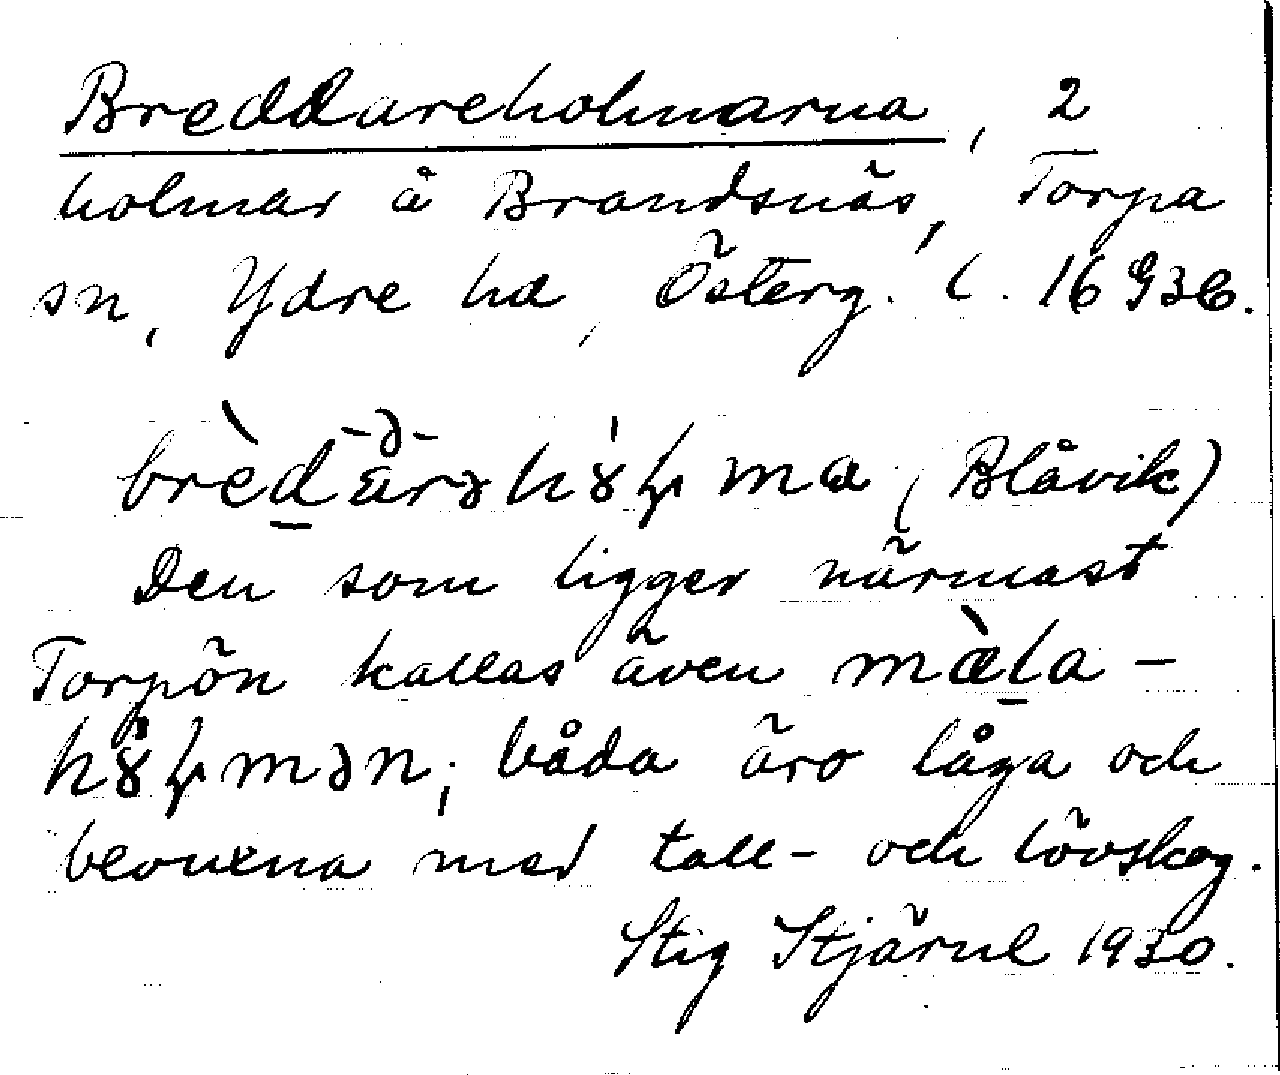 Breddareholmarna, 2
holmar å Brandsnäs, Torpa
sn, Ydre hd, Österg. l. 16 G3c.
(Blåvik)
Den som ligger närmast
Torpön kallas även
båda äro låga och
bevuxna med tall- och lövskog.
Stig Stjärne 1930.